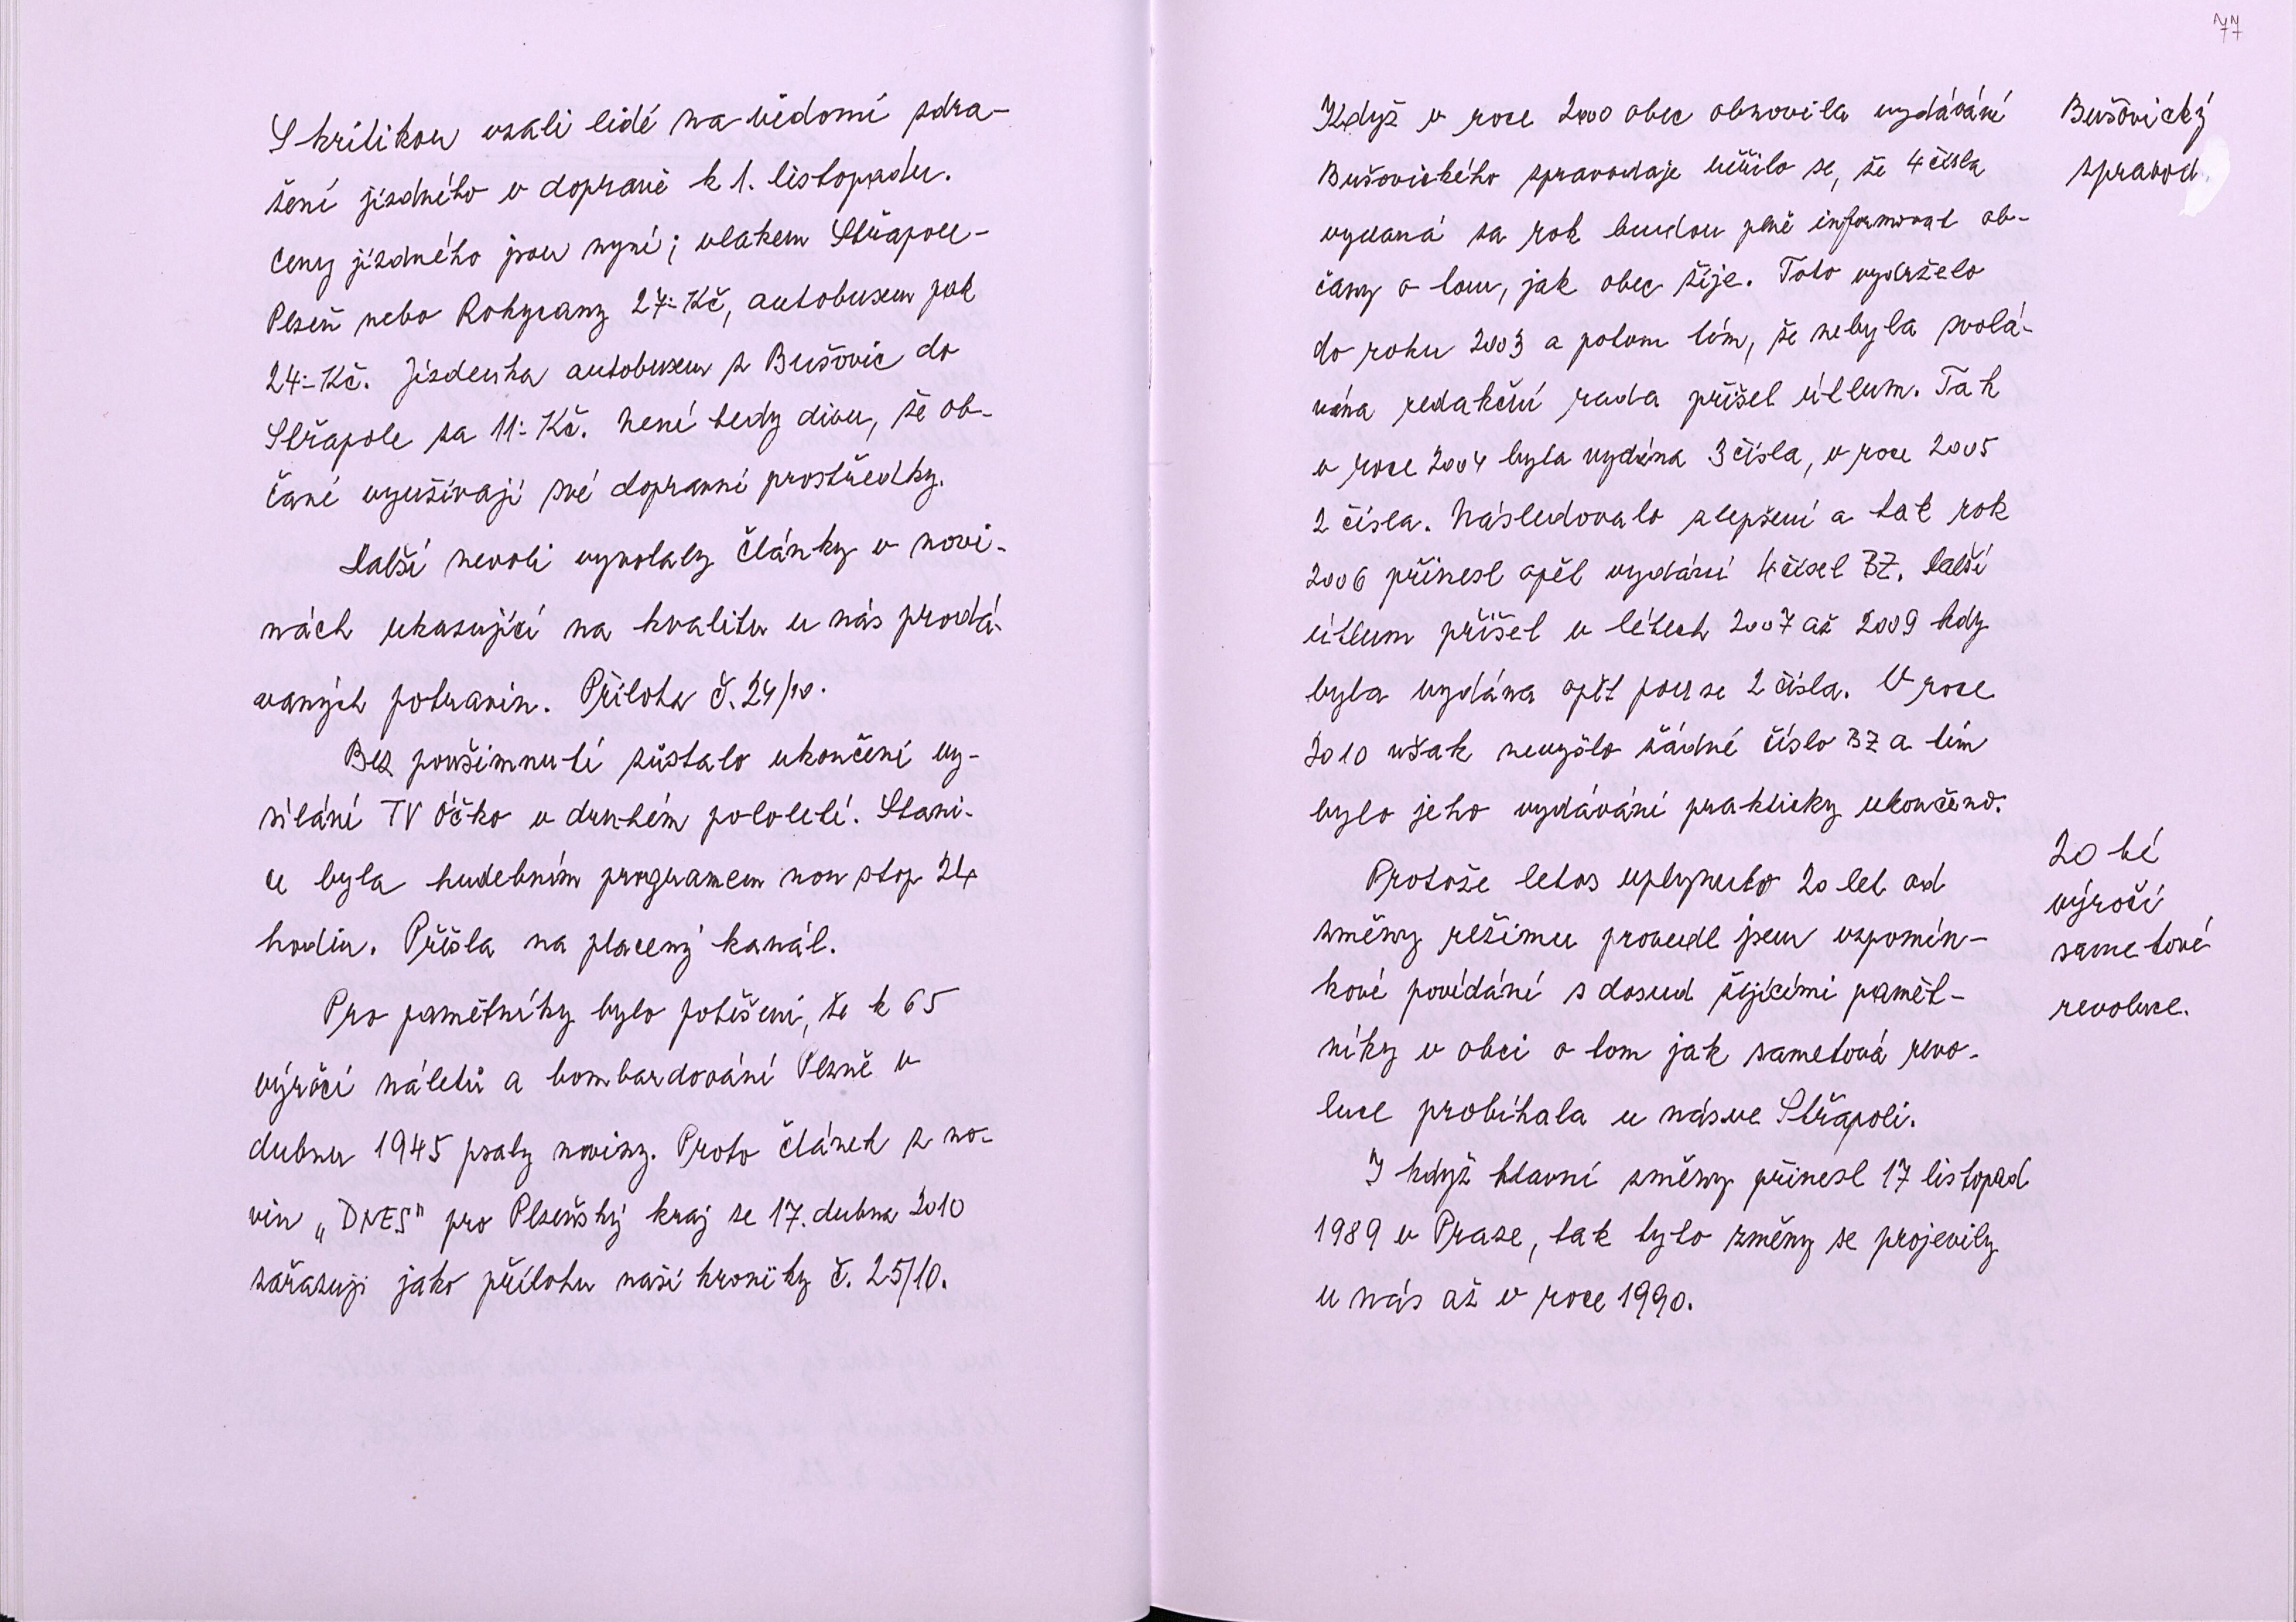 S kritikou vzali lidé na vědomí zdra-
žení jízdného v dopravě k 1. listopadu.
Ceny jízdného jsou nyní; vlakem Střapole-
Plzeň nebo Rokycany 27:- Kč, autobusem pak
24:- Kč. Jízdenka autobusem z Bušovic do
Střapole za 11:- Kč. Není tedy divu, že ob-
čané využívají své dopravní prostředky.
Další nevoli vyvolaly články v novi-
nách ukazující na kvalitu u nás prodá-
vaných potravin. Příloha č. 24/10.
Bez povšimnutí zůstalo ukončení vy-
sílání TV Óčko v druhém pololetí. Stani-
ce byla hudebním programem non stop 24
hodin. Přišla na placený kanál.
Pro pamětníky bylo potěšení, že k 65
výročí náletů a bombardování Plzně v
dubnu 1945 psaly noviny. Proto článek z no-
vin „DNES" pro Plzeňský kraj ze 17. dubna 2010
zařazuji jako přílohu naší kroniky č. 25/10.
77
Když v roce 2000 obec obnovila vydávání
Bušovického zpravodaje určilo se, že 4 čísla
vydaná za rok budou plně informovat ob-
čany o tom, jak obec žije. Toto vydrželo
do roku 2003 a potom tím, že nebyla svolá-
vána redakční rada přišel útlum. Tak
v roce 2004 byla vydána 3 čísla, v roce 2005
2 čísla. Následovalo zlepšení a tak rok
2006 přinesl opět vydání 4 čísel BZ. Další
útlum přišel v létech 2007 až 2009 kdy
byla vydána opět pouze 2 čísla. V roce
2010 však nevyšlo žádné číslo BZ a tím
bylo jeho vydávání prakticky ukončeno.
Protože letos uplynulo 20 let od
změny režimu provedl jsem vzpomín-
kové povídání s dosud žijícími pamět-
níky v obci o tom jak sametová revo-
luce probíhala u nás ve Střapoli.
I když hlavní změny přinesl 17 listopad
1989 v Praze, tak tyto změny se projevily
u nás až v roce 1990.
Bušovický
zpravod.
20 té
výročí
sametové
revoluce.